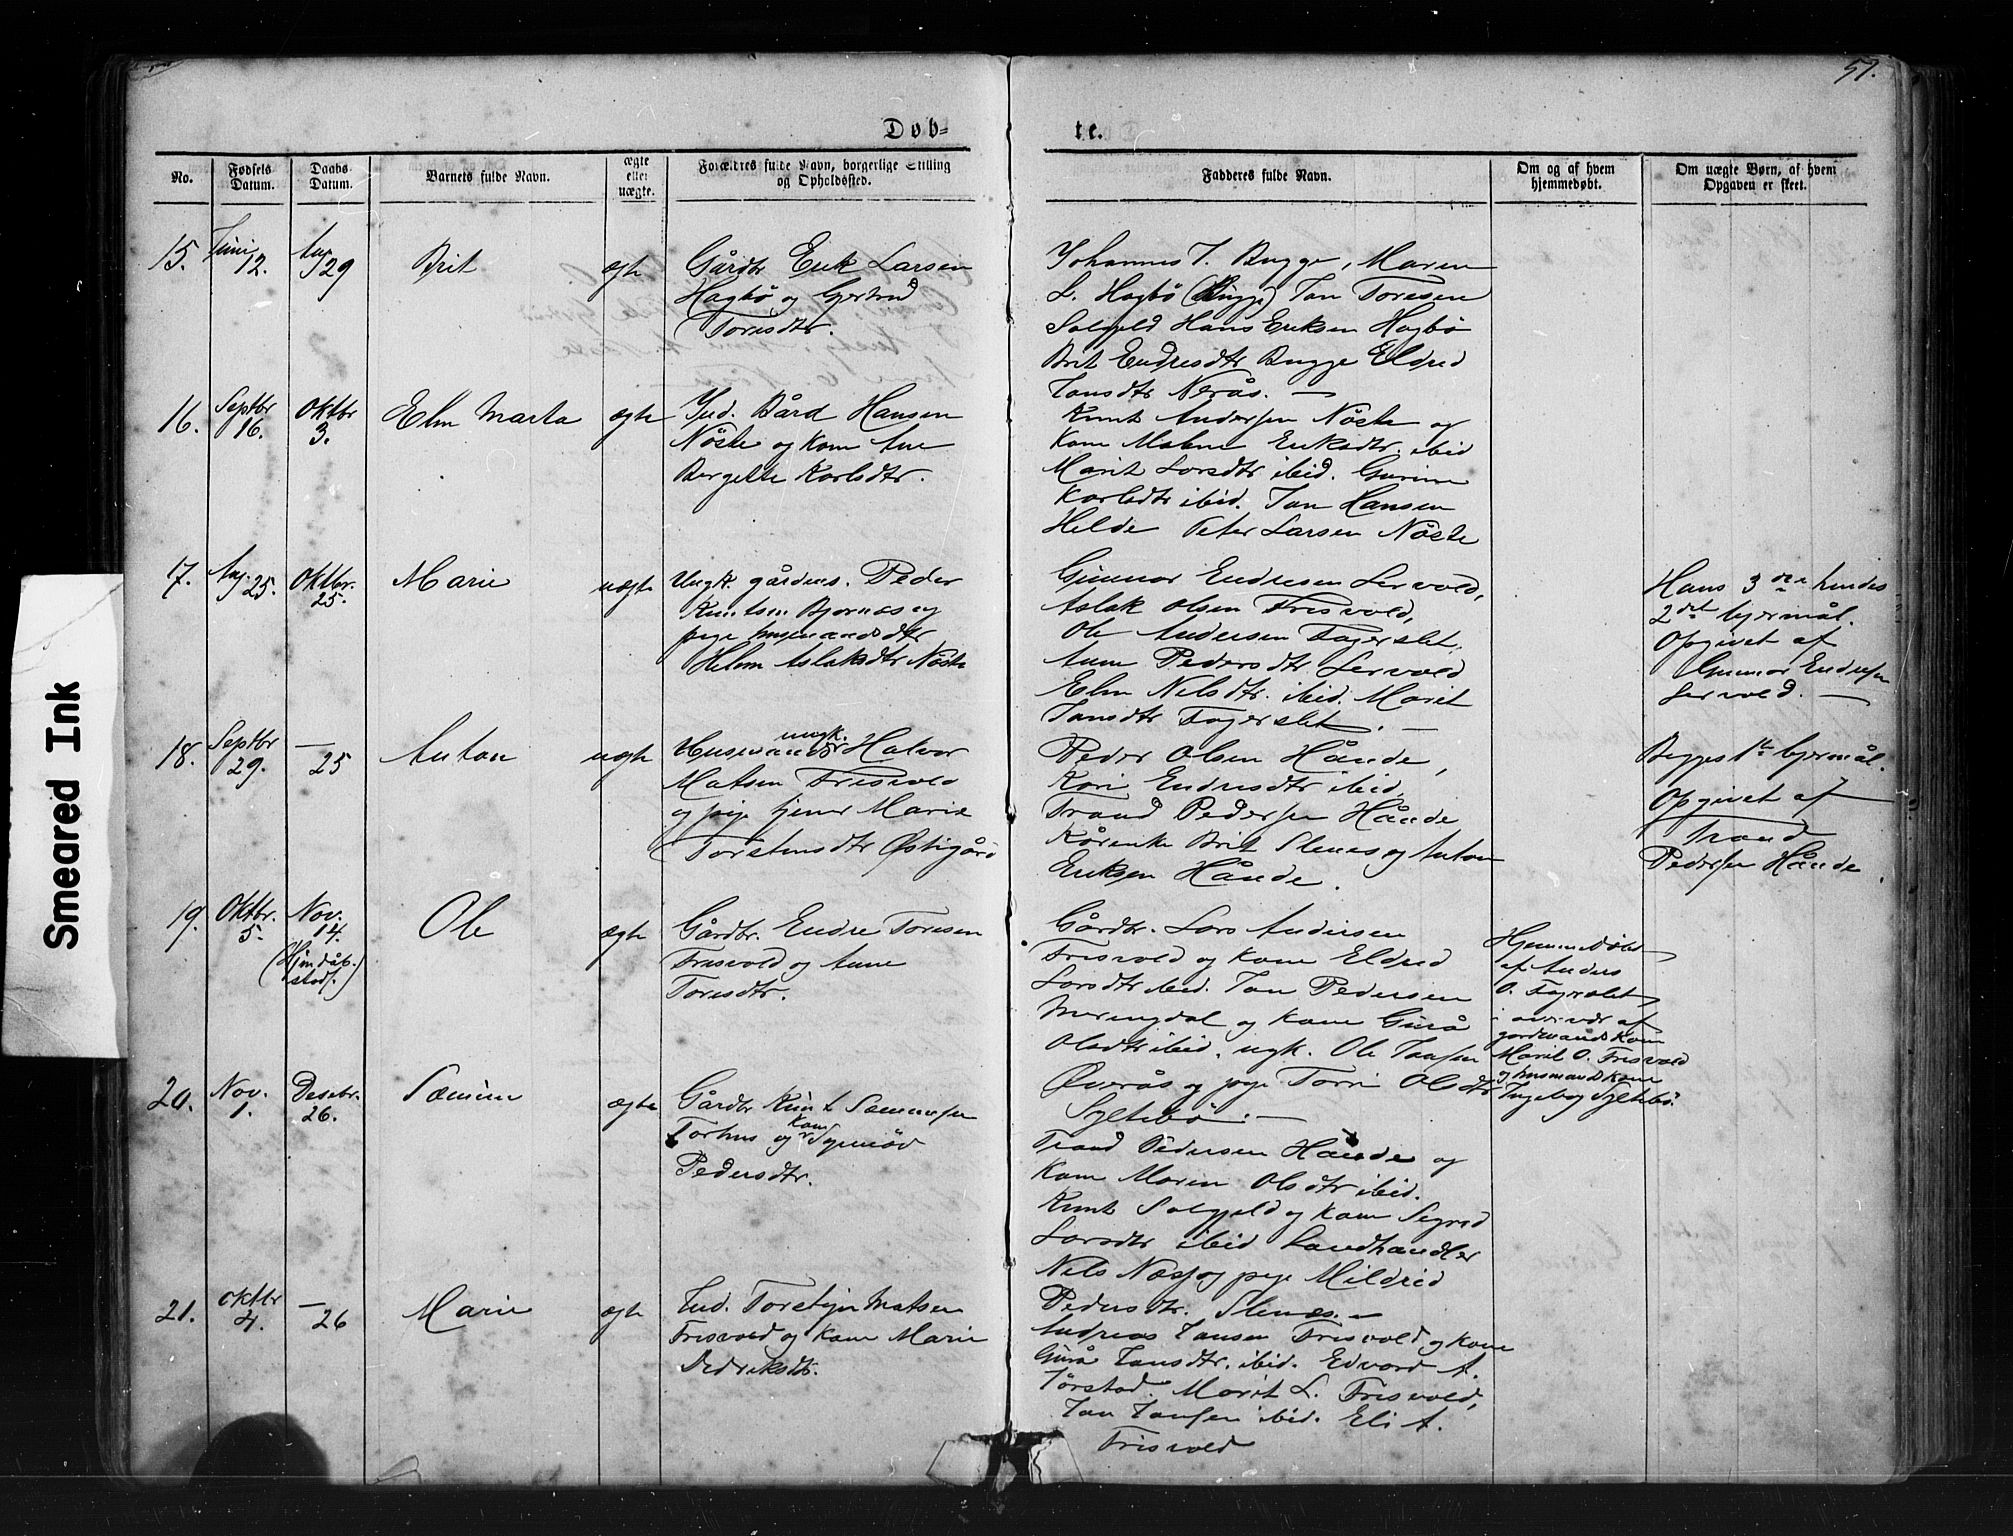 57.
Døb=
te.
No.
Fødsels
Datum.
Daabs
Datum.
Barnets fulde Navn.
ægte
eller
uægte.
Forældres fulde Navn, borgerlige Stilling
og Opholdssted.
Fadderes fulde Navn.
Om og af hvem
hjemmedøbt.
Om uægte Børn, af hvem
Opgaven er skeet.
15.
Juni
12.
Aug
29
Brit
ægte
Gårdbr Erik Larsen
Hagbø og Gjertrud
Toresdtr.
Johannes J. Bugge, Maren
L. Hagbø (Bugge) Jan Toresen
Solgjeld Hans Eriksen Hagbø
Brit Endresdtr Bugge Eldrid
Jansdtr Nerås. —
16.
Septbr
16.
Oktbr
3.
Elen Marta
ægte
Ind. Bård Hansen
Nøste og kone Ane
Bergitte Karlsdtr.
Knut Andersen Nøste og
kone Malene Eriksdtr. ibid
Marit Larsdtr ibid. Gurine
Karlsdtr ibid. Jan Hansen
Helde Peter Larsen Nøste
17.
Aug.
25.
Oktbr.
25.
Marie
uægte
Ungk. gårdms. Peder
Knutsen Bjørnås og
pige husmandsdtr
Helene Aslaksdtr Nøste
Gunnar Endresen Lervold,
Aslak Olsen Frisvold,
Ole Andersen Fagerslet,
Anne Pedersdtr Lervold
Elen Nilsdtr. ibid. Marit
Jansdtr Fagerslet. —
Hans 3die hendes
2det leiermål.
Opgivet af
Gunnar Endresen
Lervold. —
18.
Septbr
29.
—
25
Anton
uægte
ungk.
Husmands Halvor
Matsen Frisvold
og pige tjener Marie
Torstensdtr Østigård
Peder Olsen Hånde,
Kari Endresdtr ibid,
Trond Pedersen Hånde
Kårenke Brit Slenes og Anton
Eriksen Hånde.
Begges 1ste leiermål.
Opgivet af
Trond
Pedersen Hånde.
19.
Oktbr.
5.
Nov.
14.
(Hjmdåb.
stadf.)
Ole
ægte
Gårdbr. Endre Toresen
Frisvold og Anne
Toresdtr.
Gårdbr. Lars Andersen
Frisvold og kone Eldrid
Larsdtr ibid. Jan Pedersen
Meringdal og kone Gurå
Olsdtr ibid. ugk. Ole Jansen
Øverås og pige Torri Olsdtr
Syltebø. —
Hjemmedøbt
af Anders
O. Fagerslet,
i overvær af
gårdmandskone
Marit O. Frisvold
og husmandskone
Ingeborg Syltebø.
20.
Nov.
1.
Desebr.
26.
Sæmun
ægte
Gårdbr Knut Sæmunsen
Torhus og kone Synnøv
Pedersdtr.
Trond Pedersen Hånde og
kone Maren Olsdtr ibid.
Knut Solgjeld og kone Segred
Larsdtr ibid Landhandler
Nils Næss og pige Mildrid
Pedersdtr. Slenes. —
21.
Oktbr
4.
—
26
Marie
ægte
Ind. Torstein Matsen
Frisvold og kone Marie
Didriksdtr.
Andreas Jansen Frisvold og kone
Gurå Jansdtr. ibid. Edvard A.
Tørstad. Marit L. Frisvold,
Jan Jansen ibid. Eli A.
Frisvold
Smeared Ink